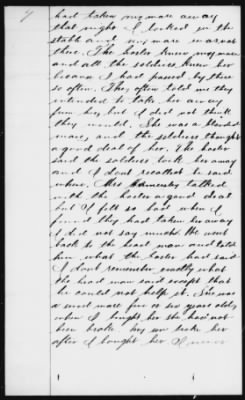 4
had taken my mare away
that night. I looked in the
stable and my mare was not
there. The hostler knew my mare
and all the soldiers knew her
because I had passed by there
so often. They often told me they
intended to take her away
from me, but I did not think
they would. She was a blooded
mare, and the soldiers thought
a good deal of her. The hostler
said the soldiers took her away
and I dont recollect he said
where. Mrs talked
with the hostler a good deal
but I felt so bad when I
found they had taken her away
I did not say much. We went
back to the head man and told
him what the hostler had said
I dont remember exactly what
the head man said except that
he could not help it. She was
a sorrel mare five or six years old,
when I bought her she had not
been broke my son broke her
after I bought her I never